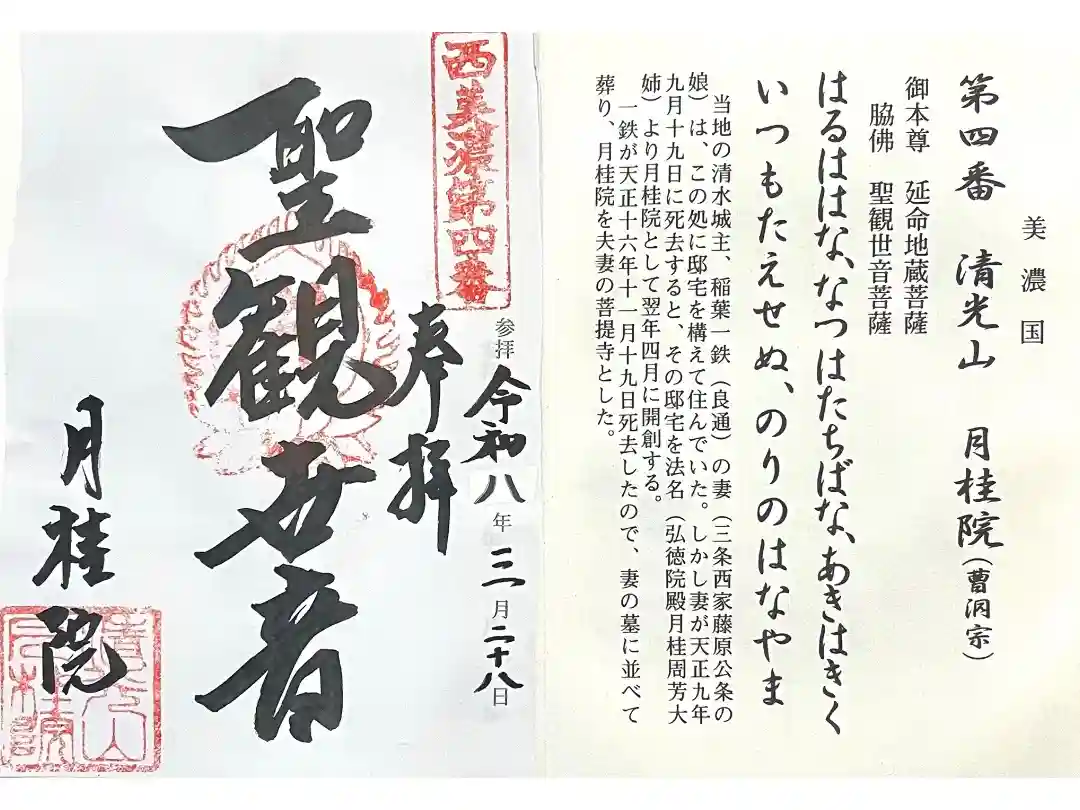 美濃国
第四番 清光山 月桂院(曹洞宗)
御本尊 延命地蔵菩薩
脇佛 聖観世音菩薩
はるははな、なつはたちばな、あきはきく
いつもたえせぬ、のりのはなやま
当地の清水城主、稲葉一鉄(良通)の妻(三条西家藤原公条の
娘)は、この処に邸宅を構えて住んでいた。しかし妻が天正九年
九月十九日に死去すると、その邸宅を法名(弘徳院殿月桂周芳大
姉)より月桂院として翌年四月に開創する。
一鉄が天正十六年十一月十九日死去したので、妻の墓に並べて
葬り、月桂院を夫妻の菩提寺とした。
西美濃第四番
参拝 令和八年三月二十八日
奉拝
聖観世音
月桂院
清光山
月桂院